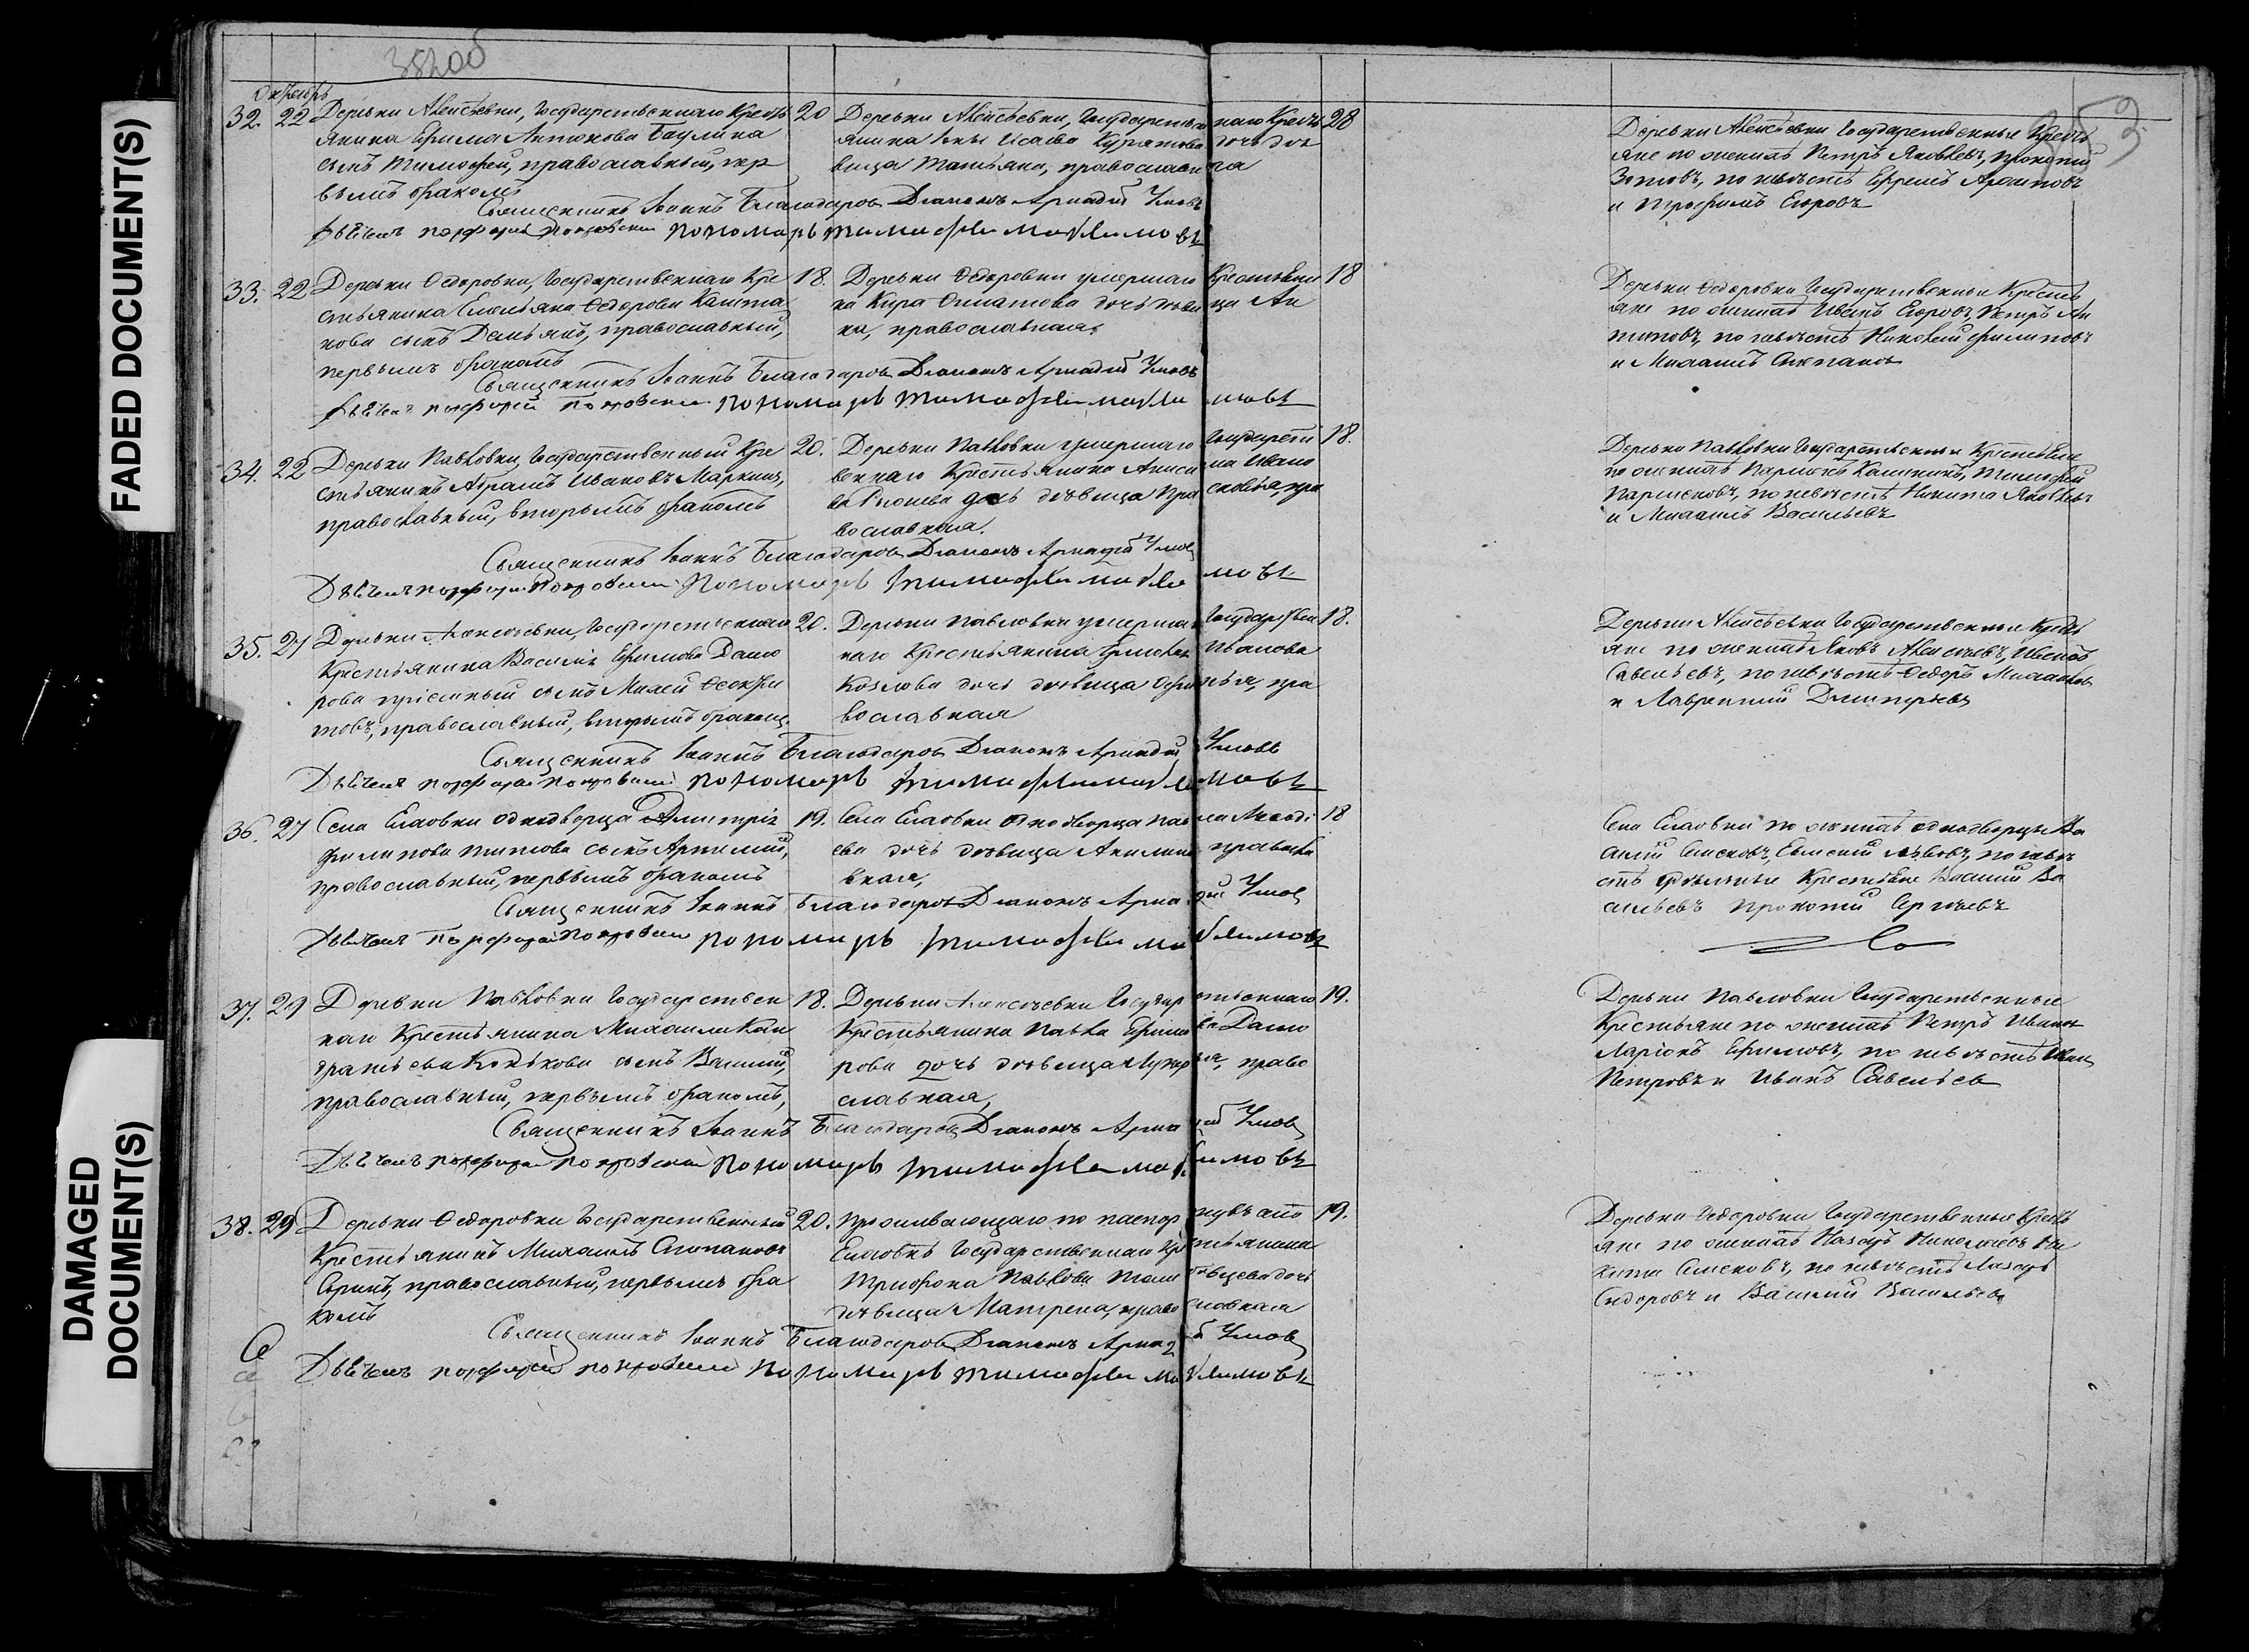 FADED DOCUMENT(S)
DAMAGED DOCUMENT(S)
Октябрь
32. 22 Деревни Алексѣевки, Государственнаго Кресть
янина Ефима Антонова
сынъ Тимофей, православный, пер
вымъ бракомъ
20
Деревни Алексѣевки, Государствен наго Кресть
янина Исаева дочь дѣ
вица Татьяна, православная
28
Деревни Алексѣевки Государственные Кресть
яне по женихѣ Петръ Яковлевъ, Прокопій
Зотовъ, по невѣстѣ Ефремъ Архиповъ
и Трофимъ Егоровъ
Священникъ Іоаннъ Благодаровъ Діаконъ Аркадій Умовъ
Дьячекъ Порфирій Покровскій Пономарь Тимофей
33. 22 Деревни Ѳедоровки, Государственнаго Кре
стьянина Емельяна Ѳедорова Кашта
нова сынъ Демьянъ, православный,
первымъ бракомъ
18.
Деревни Ѳедоровки умершаго Крестьяни
на Кира дочь дѣвица Ан
на, православная
18
Деревни Ѳедоровки Государственные Кресть
яне по женихѣ Иванъ Егоровъ, Петръ Ан
типовъ, по невѣстѣ Николай Филиповъ
и Михаилъ Степановъ
Священникъ Іоаннъ Благодаровъ Діаконъ Аркадій Умовъ
Дьячекъ Порфирій Покровскій Пономарь Тимофей
34. 22 Деревни Павловки, Государственный Кре
стьянинъ Абрамъ Ивановъ Маркинъ,
православный, вторымъ бракомъ
20.
Деревни Павловки умершаго Государст
веннаго Крестьянина Аниси ма Ивано
ва дочь дѣвица Пра сковья, пра
вославная.
18.
Деревни Павловки Государственные Крестьяне
по женихѣ Парменъ Калининъ, Тимофей
Парменовъ, по невѣстѣ Никита Яковлевъ
и Михаилъ Васильевъ
Священникъ Іоаннъ Благодаровъ Діаконъ Аркадій Умовъ
Дьячекъ Порфирій Покровскій Пономарь Тимофей
35. 27 Деревни Алексѣевки, Государственнаго
Крестьянина Василія Ефимова
пріемный сынъ Михей
православный, вторымъ бракомъ.
20.
Деревни Павловки умершаго Государствен
наго Крестьянина Ермолая Иванова
Козлова дочь дѣвица пра
вославная
18.
Деревни Алексѣевки Государственные Кресть
яне по женихѣ Яковъ Алексѣевъ, Иванъ
Савельевъ, по невѣстѣ Ѳедоръ Михайловъ
и Лаврентий Дмитріевъ
Священникъ Іоаннъ Благодаровъ Діаконъ Аркадій Умовъ
Дьячекъ Порфирій Покровскій Пономарь Тимофей
36. 27 Села Елаовки однодворца Дмитрія
Филипова Титова сынъ Артемій,
православный, первымъ бракомъ
19.
Села Елаовки однодворца Пав ла
ева дочь дѣвица Акилина правосла
вная,
18
Села Елаовки по женихѣ однодворцы Ва
силій Семеновъ, Евмений Львовъ, по невѣ
стѣ Крестьяне Василий Ва
сильевъ Прокопий Сергѣевъ
Священникъ Іоаннъ Благодаровъ Діаконъ Аркадій Умовъ
Дьячекъ Порфирій Покровскій Пономарь Тимофей
37. 29 Деревни Павловки Государствен
наго Крестьянина Михаила Кон
дратьева Конькова сынъ Василий,
православный, первымъ бракомъ,
18.
Деревни Алексѣевки Государ ственнаго
Крестьянина Павла Ефимо ва
дочь дѣвица право
славная,
19.
Деревни Павловки Государственные
Крестьяне по женихѣ Петръ Ивановъ
Ларіонъ Ефимовъ, по невѣстѣ Иванъ
Петровъ и Иванъ Савельевъ
Священникъ Іоаннъ Благодаровъ Діаконъ Аркадій Умовъ
Дьячекъ Порфирій Покровскій Пономарь Тимофей
38. 29 Деревни Ѳедоровки Государственный
Крестьянинъ Михаилъ Степановъ
православный, первымъ бра
комъ
20.
Проживающаго по паспор ту въ селѣ
Елаовкѣ Государственнаго Кре стьянина
Трифона Павлова дочь
дѣвица Матрена, право славная
19.
Деревни Ѳедоровки Государственные Кресть
яне по женихѣ Назаръ Николаевъ Ни
кита Семеновъ, по невѣстѣ Лазарь
Сидоровъ и Василий Васильевъ
Священникъ Іоаннъ Благодаровъ Діаконъ Аркадій Умовъ
Дьячекъ Порфирій Покровскій Пономарь Тимофей